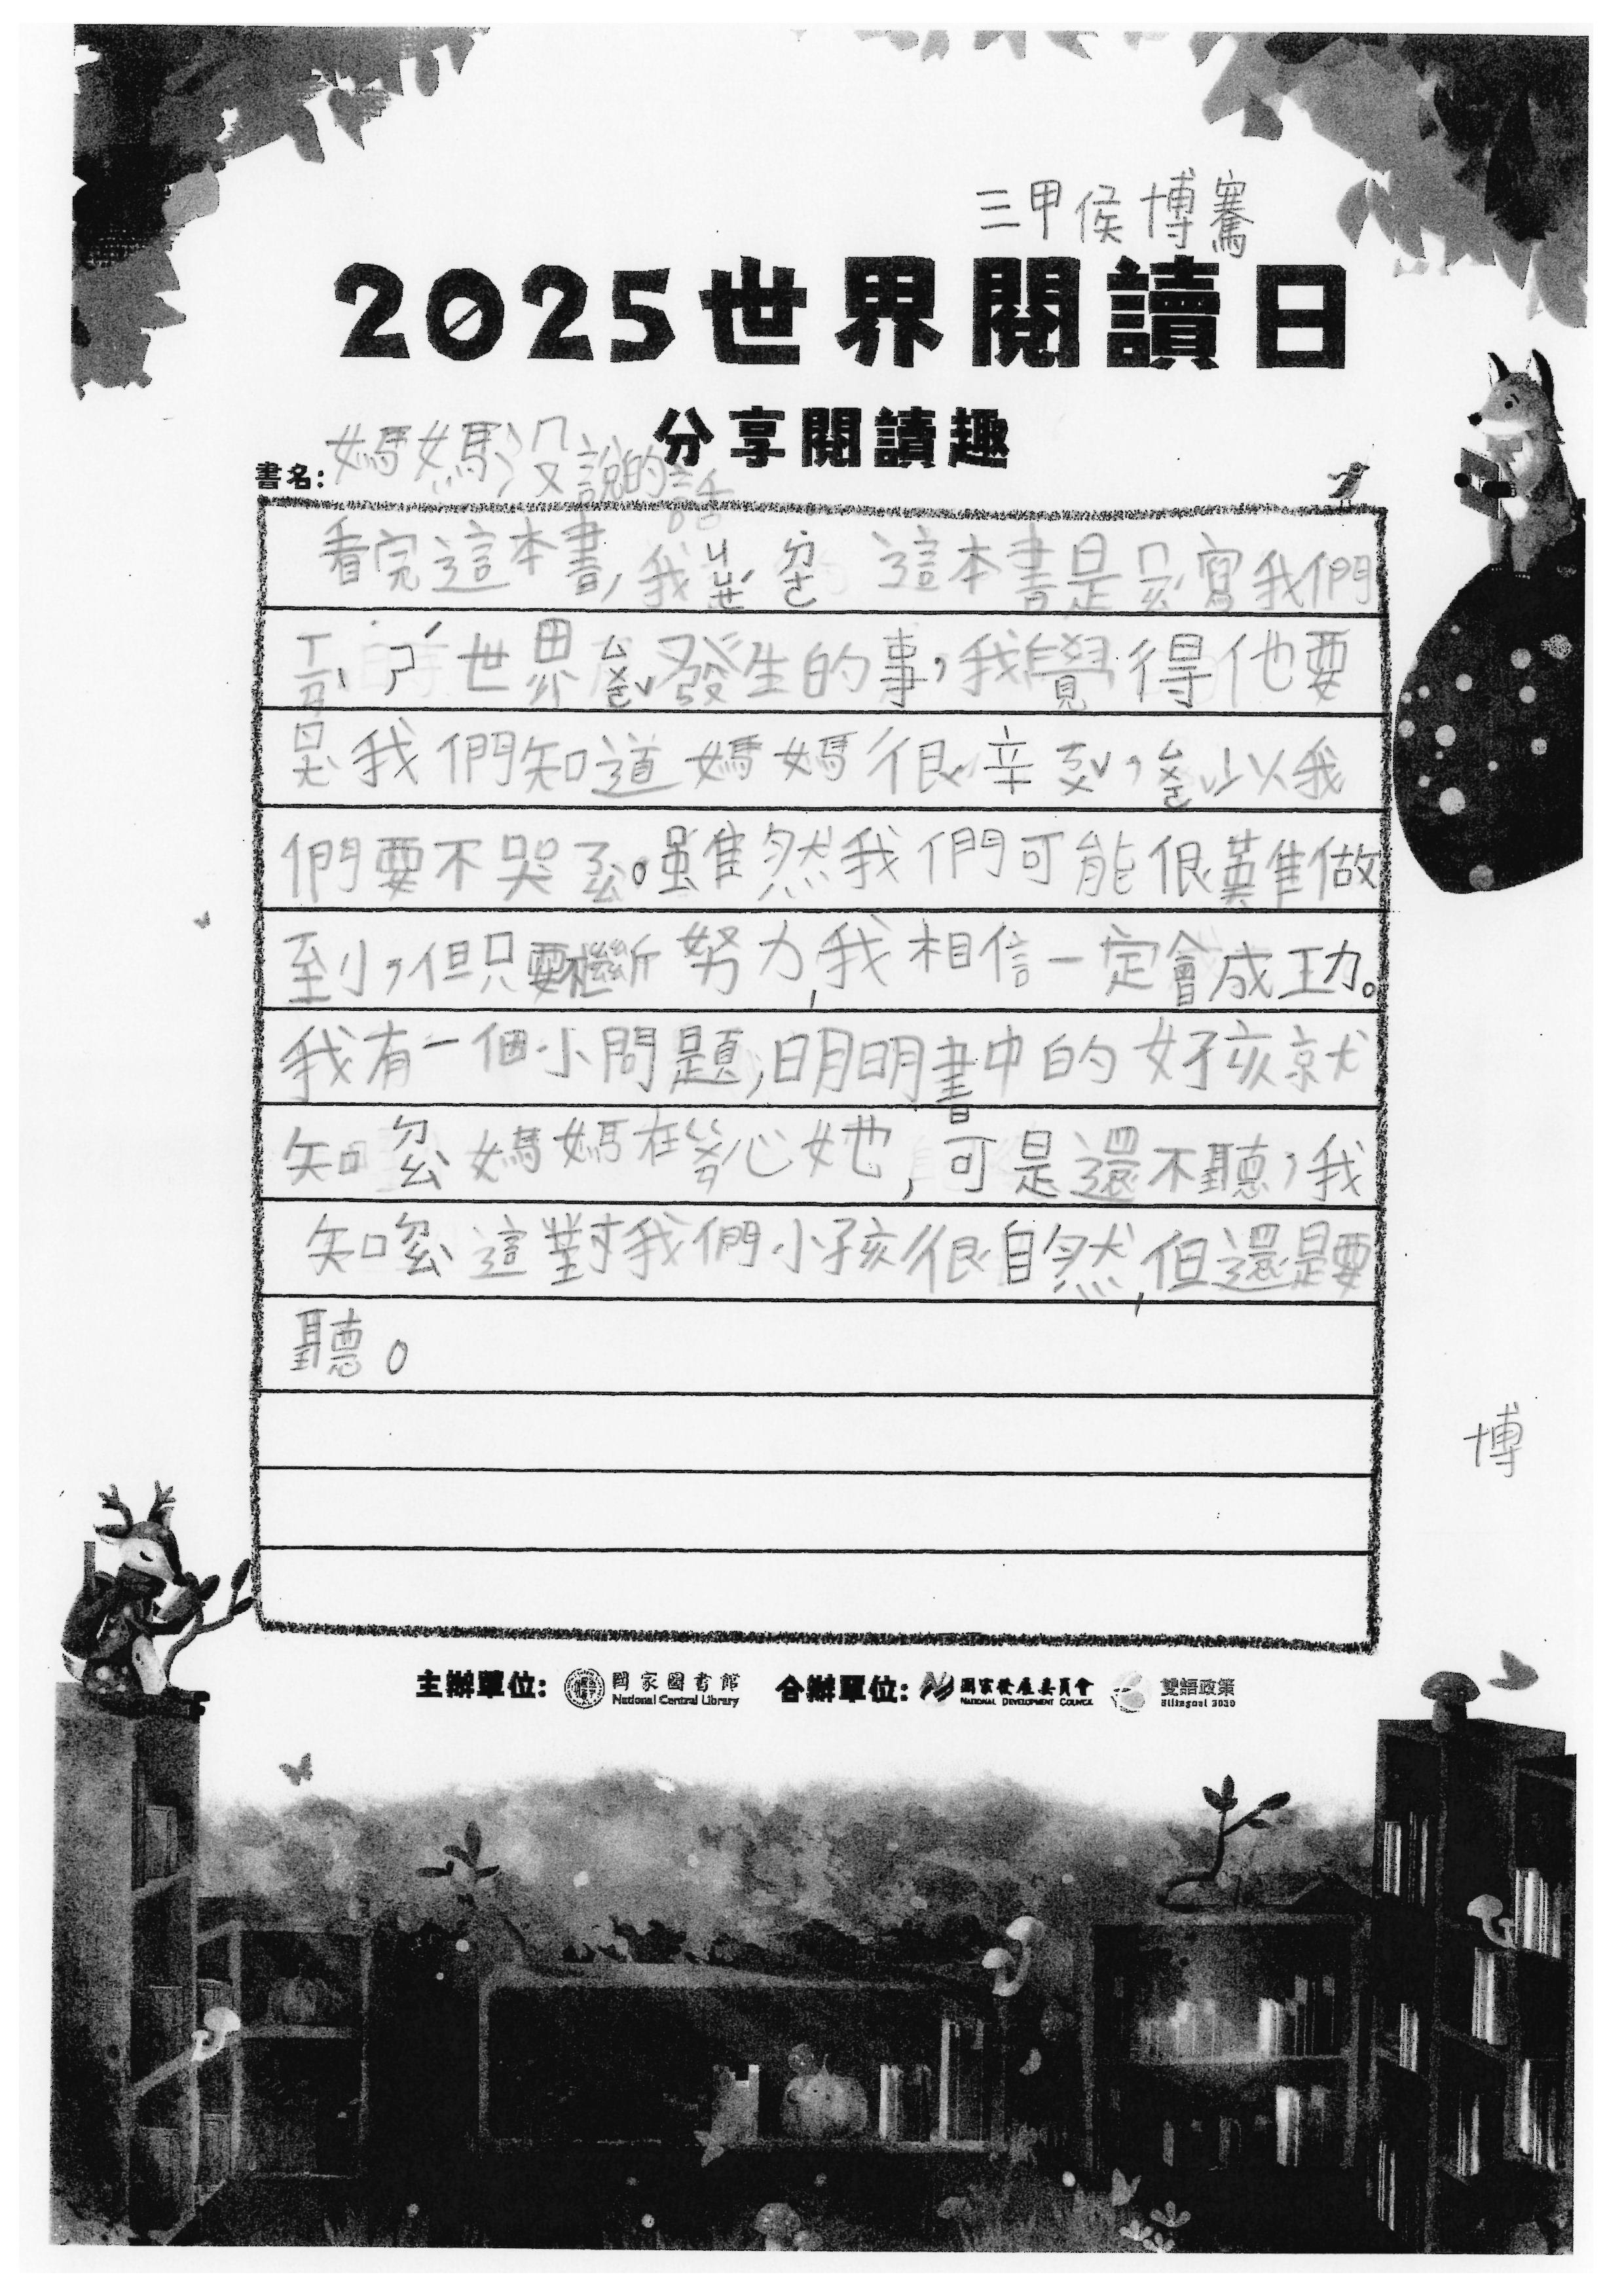 三甲侯博騫
2025世界閱讀日
分享閱讀趣
書名:媽媽沒說的話
看完這本書,我ㄐㄩㄝˊㄉㄜ 這本書是ㄇㄠ寫我們
ㄒㄧㄢˋㄕˊ世界ㄙㄨㄛˇ發生的事,我覺得他要
我們知道媽媽很辛ㄎㄨˇ,ㄙㄨㄛˇ以我
們要不哭了。雖然我們可能很難做
到,但只要不斷努力,我相信一定會成功。
我有一個小問題,明明書中的女孩就
知ㄉㄠ媽媽在 心她,可是還不聽,我
知ㄉㄠ這對我們小孩很自然,但還是要
聽。
博
主辦單位: 國家圖書館 合辦單位: 國家發展委員會 雙語政策
National Central Library NATIONAL DEVELOPMENT COUNCIL Bilingual 2030